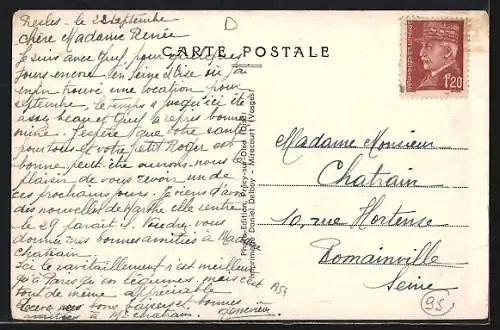 Presles - le 22 septembre
chère Madame Renée
Je suis avec Guf, pour quelques
jours encore en Seine et Oise où j'ai
enfin trouvé une location pour
septembre. Le temps a jusqu'ici été
assez beau et Guf a repris bonne
mine. J'espère que votre santé
pour tous et votre petit Roger est
bonne. peut-être aurons-nous
plaisir de vous revoir un de
ces prochains jours. Je viens d'avoir
des nouvelles de Marthe elle rentre
le 29 paraît-il. Voudrez-vous
donner mes bonnes amitiés à Madame
Chatrain.
Ici le ravitaillement n'est meilleur
qu'à Paris qu'en légumes, mais c'est
tout de même appréciable
Recevez mes bons baisers et bonnes
amitiés à Mr chatrain. Geneviève
D
CARTE POSTALE
Imprimerie Daniel Delboy - Mirecourt (Vosges)
POSTES FRANÇAISES
1F20
Madame Monsieur
Chatrain
10, rue Hortense
Romainville
Seine
A54
95